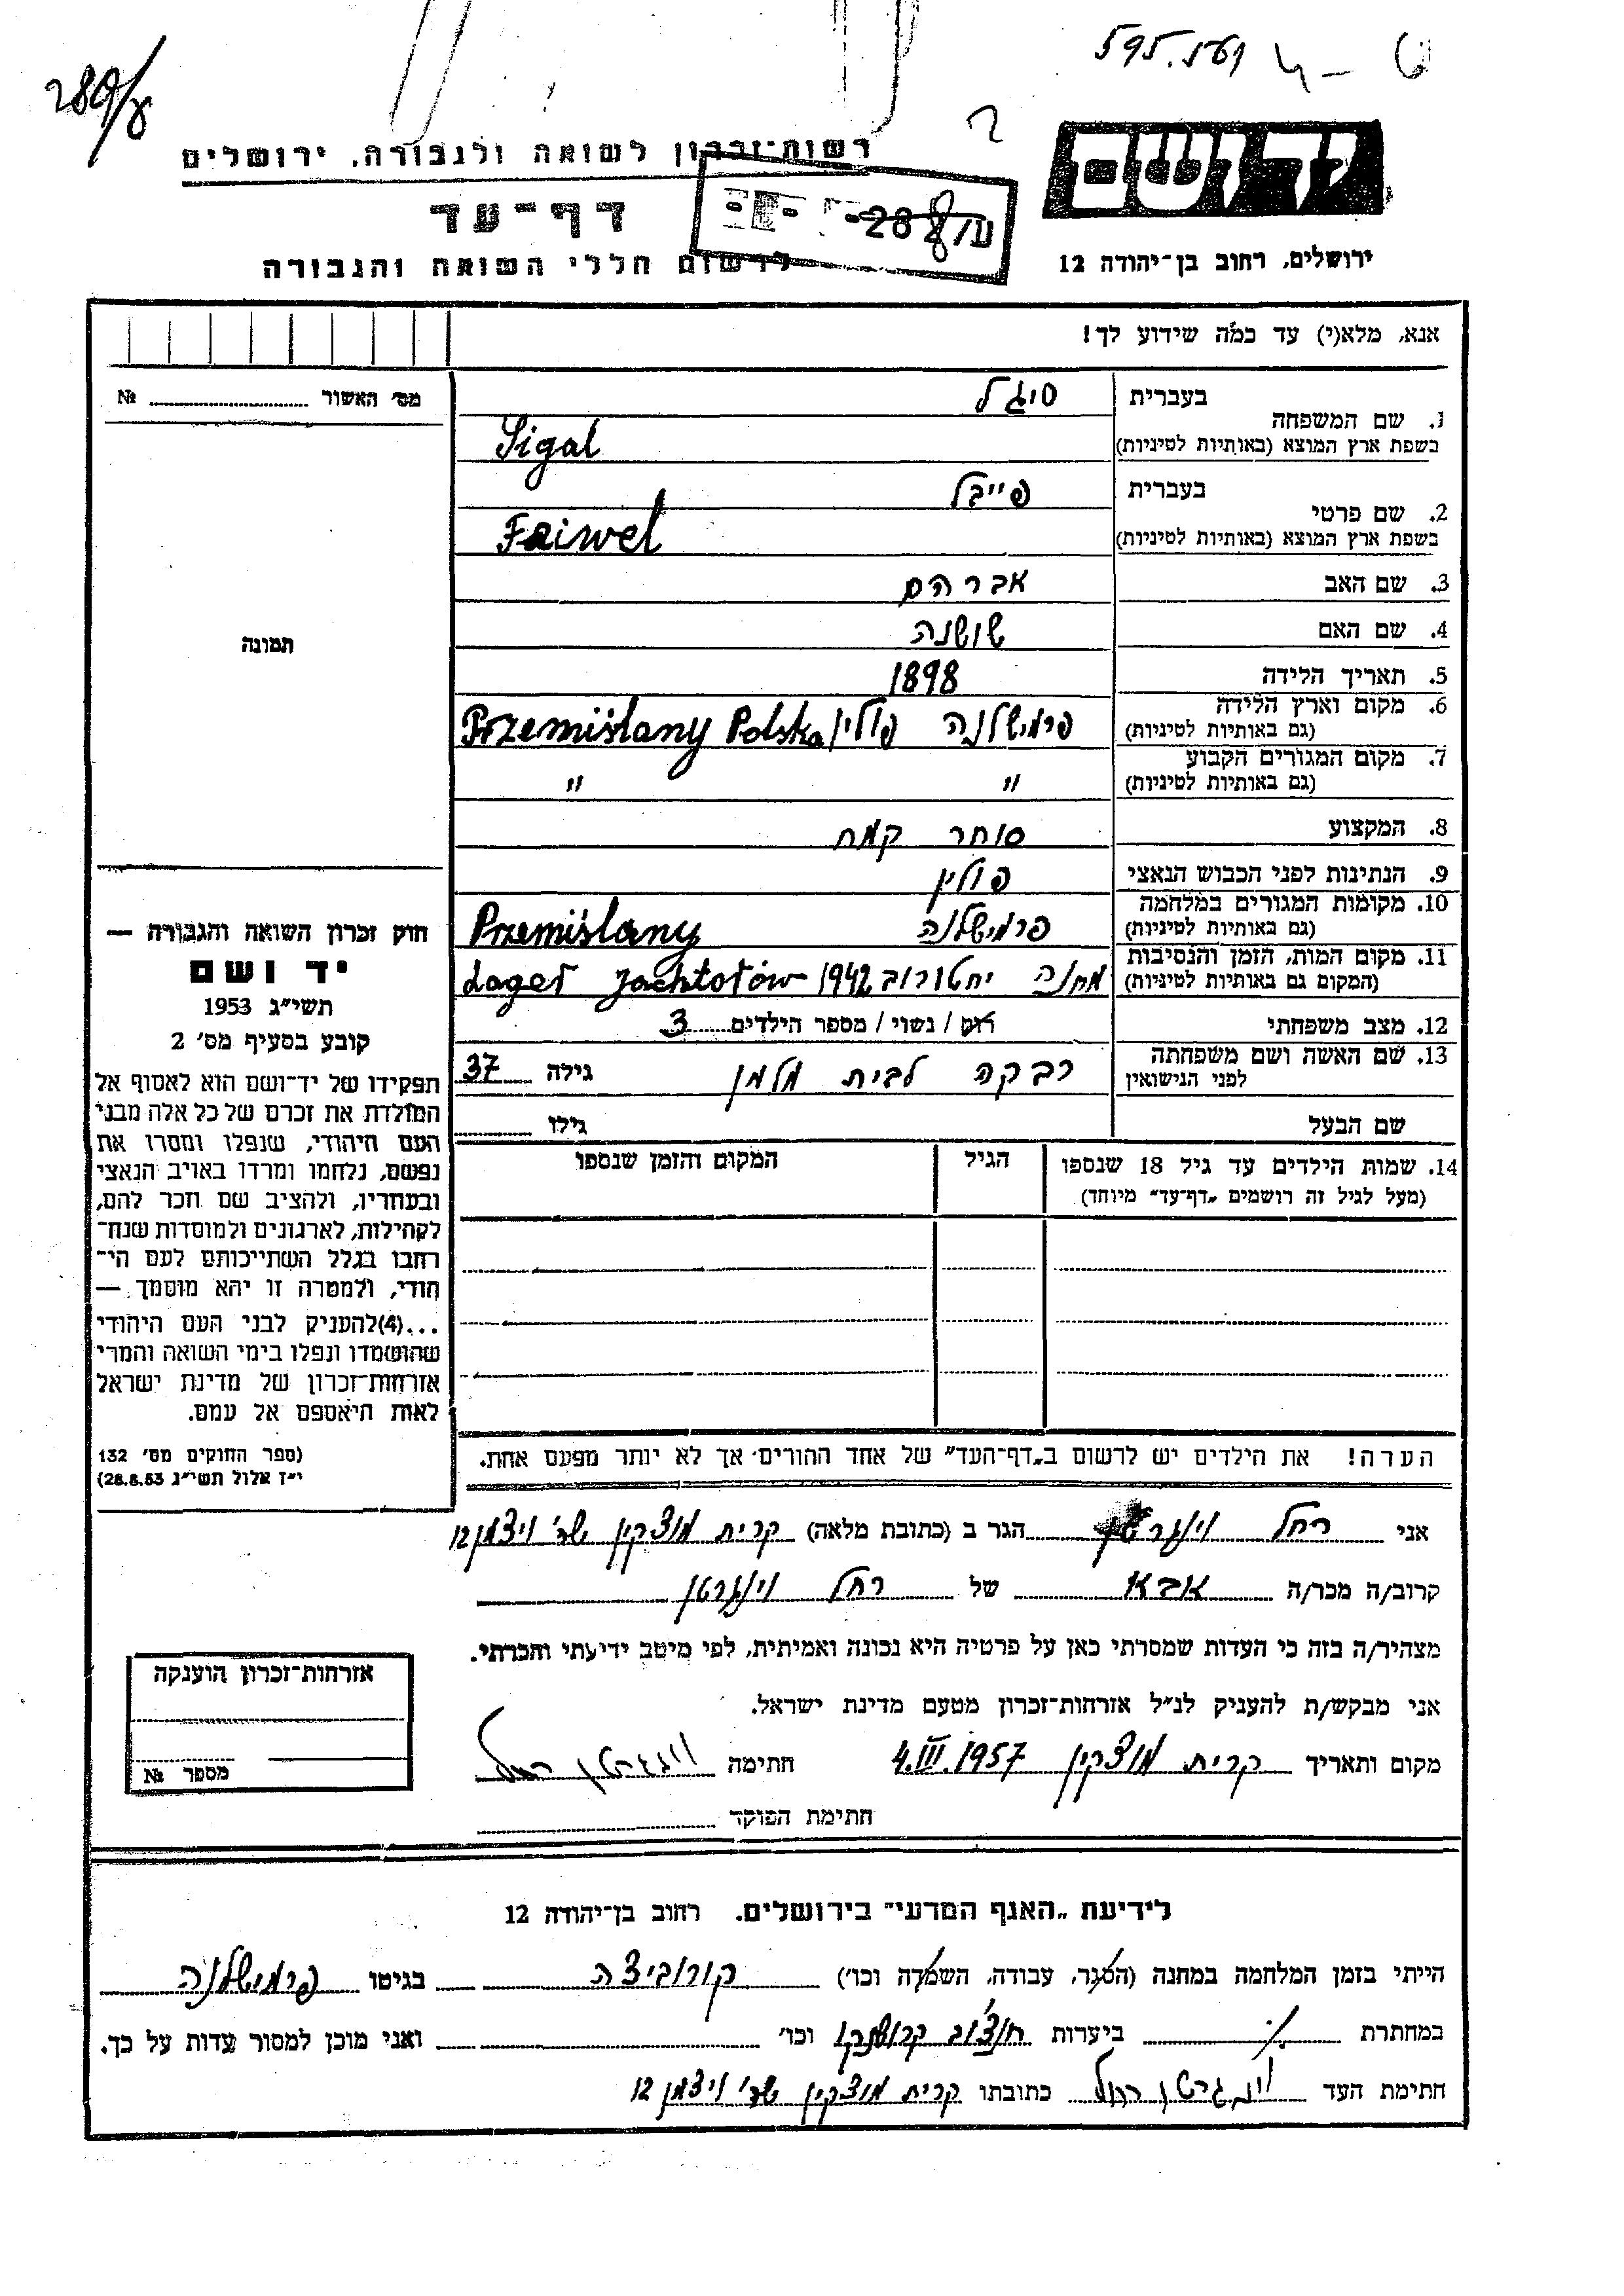 595.561
289/ע
יד ושם
ירושלים, רחוב בן־יהודה 12
רשות־זכרון לשואה ולגבורה, ירושלים
דף־עד
לרשום חללי השואה והגבורה
אנא, מלא(י) עד כמה שידוע לך!
מס' האשור № 
תמונה
1. שם המשפחה
בעברית סיגל
בשפת ארץ המוצא (באותיות לטיניות) Sigal
2. שם פרטי
בעברית פייבל
בשפת ארץ המוצא (באותיות לטיניות) Feiwel
3. שם האב אברהם
4. שם האם שושנה
5. תאריך הלידה 1898
6. מקום וארץ הלידה (גם באותיות לטיניות) פרמישלנה פולין / Przemiślany Polska
7. מקום המגורים הקבוע (גם באותיות לטיניות) " "
8. המקצוע סוחר קמח
9. הנתינות לפני הכבוש הנאצי פולין
10. מקומות המגורים במלחמה (גם באותיות לטיניות) פרמישלנה Przemiślany
11. מקום המות, הזמן והנסיבות (המקום גם באותיות לטיניות) מחנה יחטורוב 1942 Lager Jachtorów
12. מצב משפחתי רווק / נשוי / מספר הילדים 3
13. שם האשה ושם משפחתה לפני הנישואין רבקה לבית מלמן גילה 37
שם הבעל גילו
14. שמות הילדים עד גיל 18 שנספו (מעל לגיל זה רושמים „דף־עד" מיוחד)
הגיל
המקום והזמן שנספו
הערה! את הילדים יש לרשום ב„דף־העד" של אחד ההורים אך לא יותר מפעם אחת.
חוק זכרון השואה והגבורה —
יד ושם
תשי"ג 1953
קובע בסעיף מס' 2
תפקידו של יד־ושם הוא לאסוף אל
המולדת את זכרם של כל אלה מבני
העם היהודי, שנפלו ומסרו את
נפשם, נלחמו ומרדו באויב הנאצי
ובעוזריו, ולהציב שם וזכר להם,
לקהילות, לארגונים ולמוסדות שנח־
רבו בגלל השתייכותם לעם הי־
הודי, ולמטרה זו יהא מוסמך —
...(4) להעניק לבני העם היהודי
שהושמדו ונפלו בימי השואה והמרי
אזרחות־זכרון של מדינת ישראל
לאות היאספם אל עמם.
(ספר החוקים מס' 132
י"ז אלול תשי"ג 28.8.53)
אני רחל וינגרטן הגר ב (כתובת מלאה) קרית מוצקין שד' ויצמן 12
קרוב/ה מכר/ה אבא של רחל וינגרטן
מצהיר/ה בזה כי העדות שמסרתי כאן על פרטיה היא נכונה ואמיתית, לפי מיטב ידיעתי והכרתי.
אני מבקש/ת להעניק לנ"ל אזרחות־זכרון מטעם מדינת ישראל.
מקום ותאריך קרית מוצקין 4.III.1957 חתימה וינגרטן רחל
חתימת הפוקד
אזרחות־זכרון הוענקה
מספר №
לידיעת „האגף המדעי" בירושלים. רחוב בן־יהודה 12
הייתי בזמן המלחמה במחנה (הסגר, עבודה, השמדה וכו') קורוביצה בגיטו פרמישלנה
במחתרת ביערות וכו' ואני מוכן למסור עדות על כך.
חתימת העד וינגרטן רחל כתובתו קרית מוצקין שד' ויצמן 12